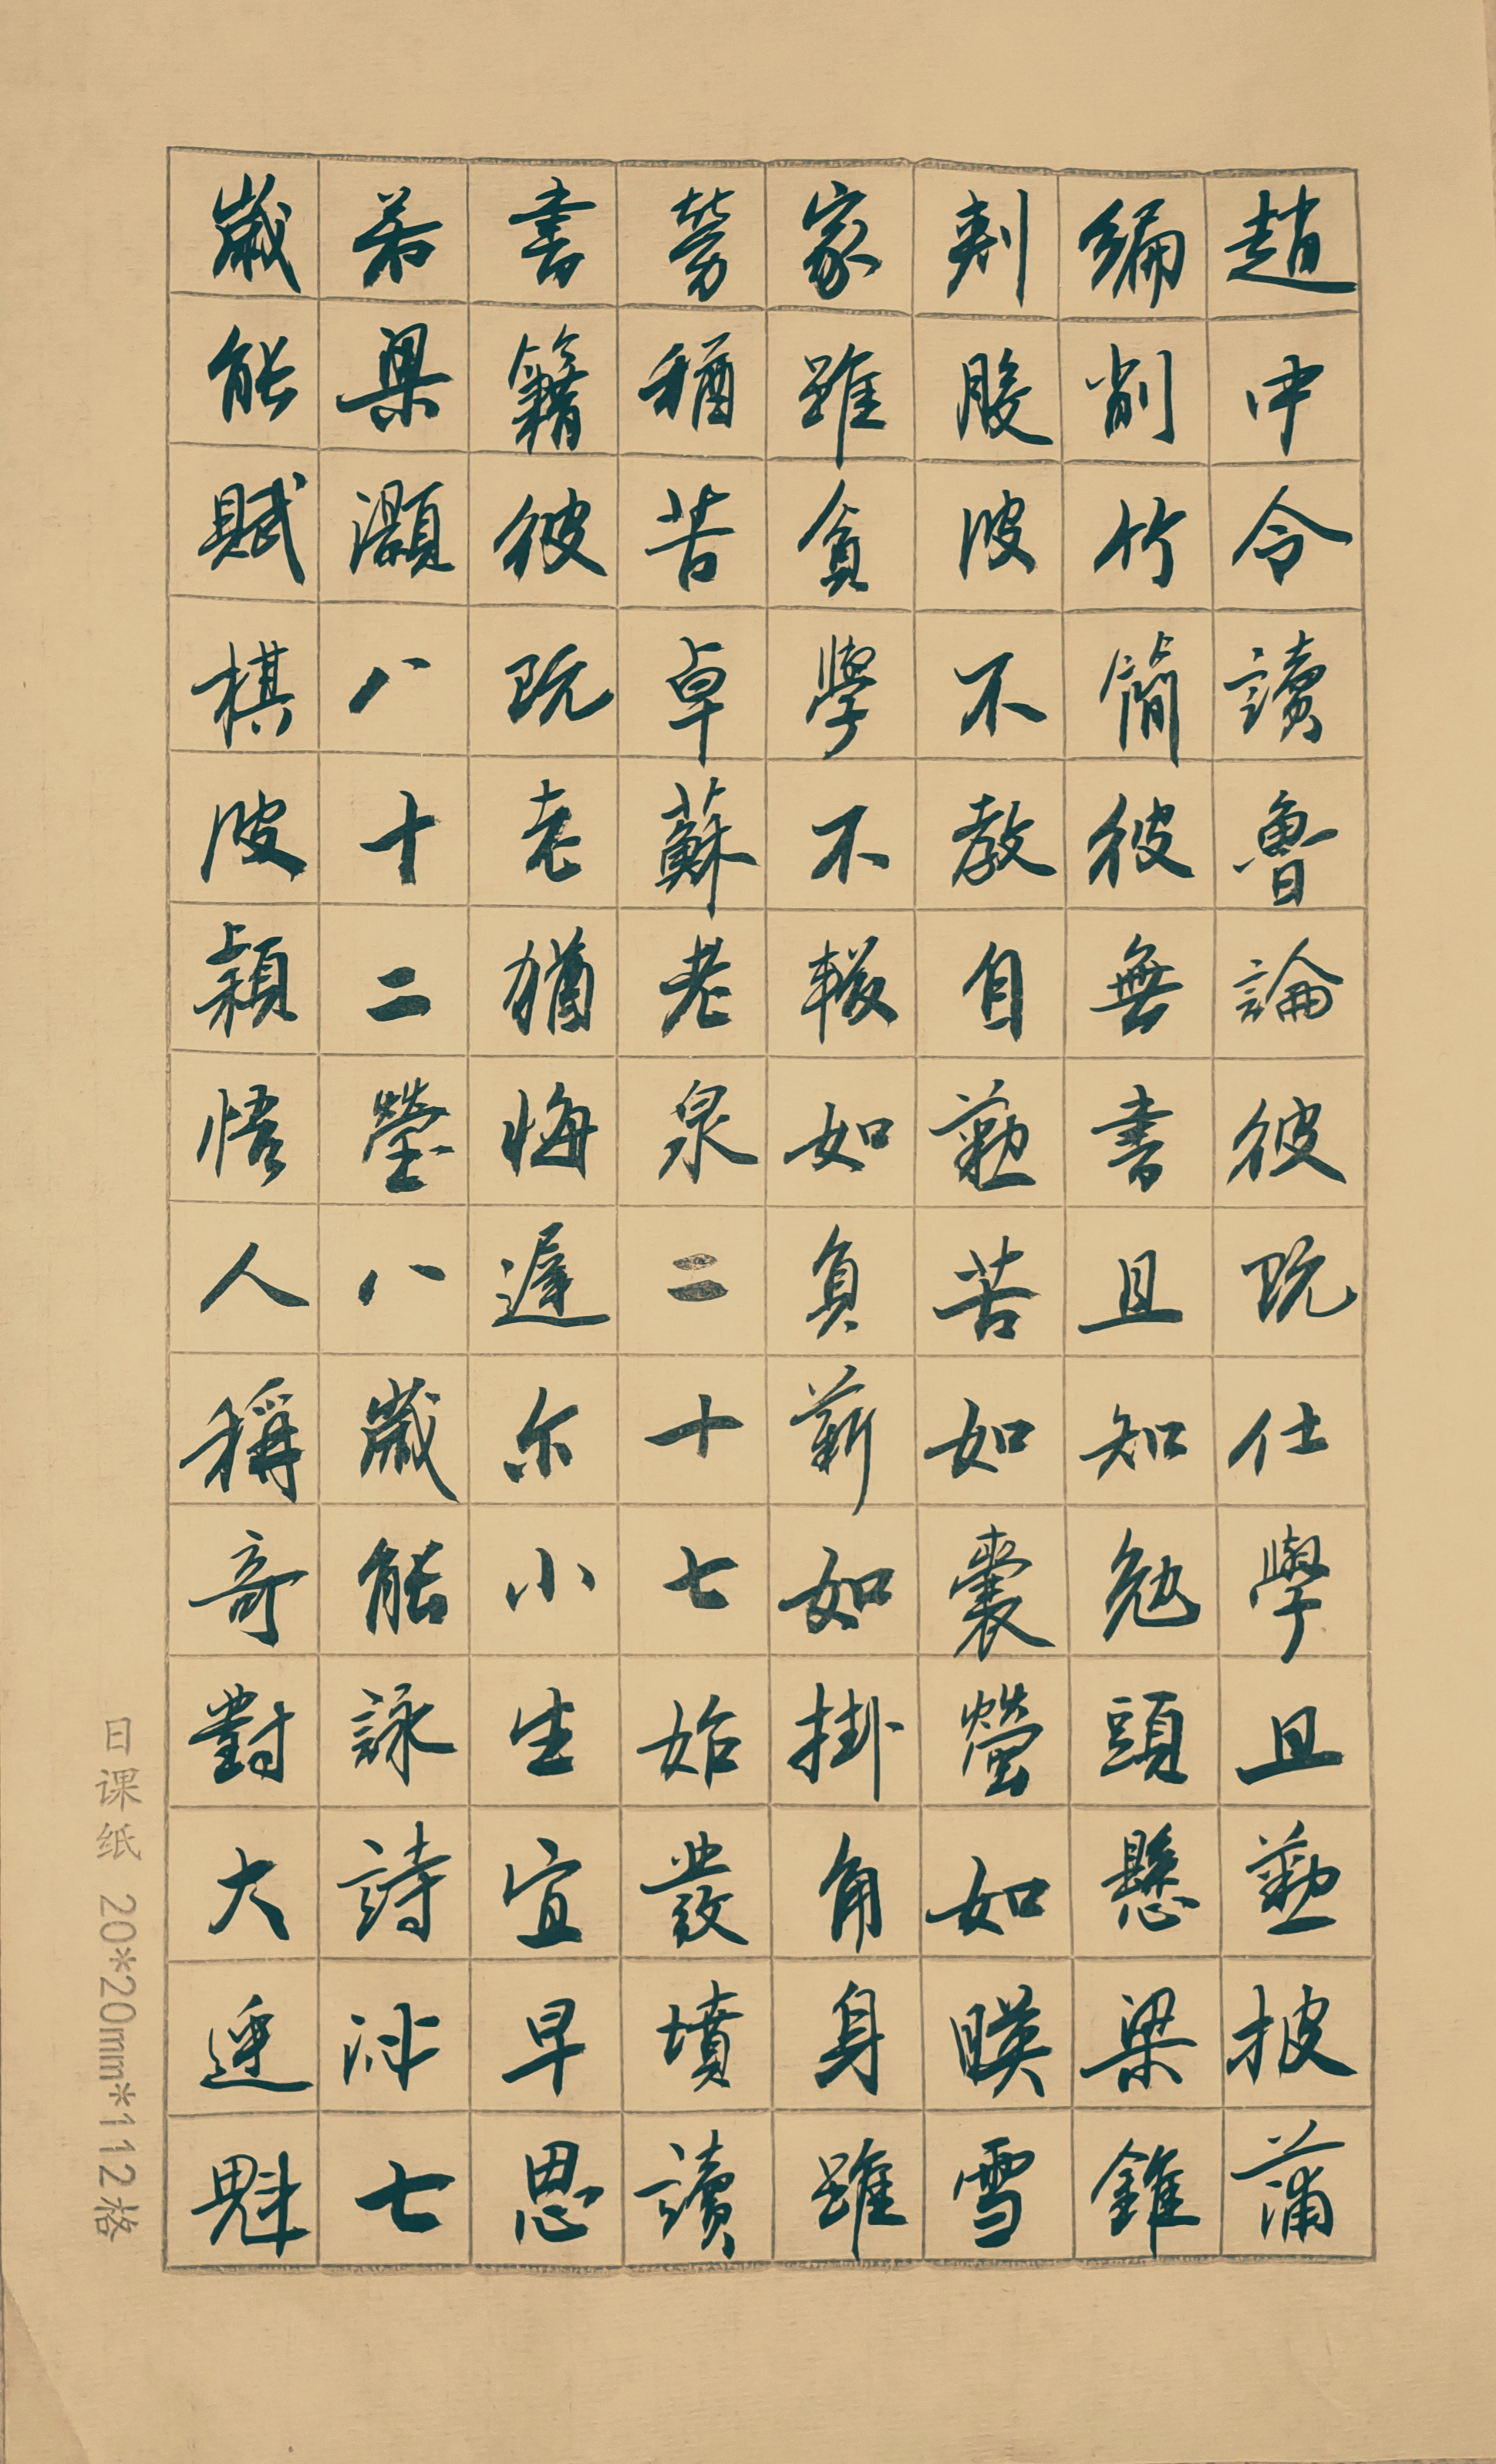 趙中令讀魯論彼既仕學且勤披蒲
編削竹簡彼無書且知勉頭懸梁錐
刺股彼不教自勤苦如囊螢如映雪
家雖貧學不輟如負薪如掛角身雖
勞猶苦卓蘇老泉二十七始發墳讀
書籍彼既老猶悔遲尔小生宜早思
若梁灝八十二瑩八歲能詠詩泌七
歲能賦棋彼穎悟人稱奇對大廷魁
日课纸 20*20mm*112格